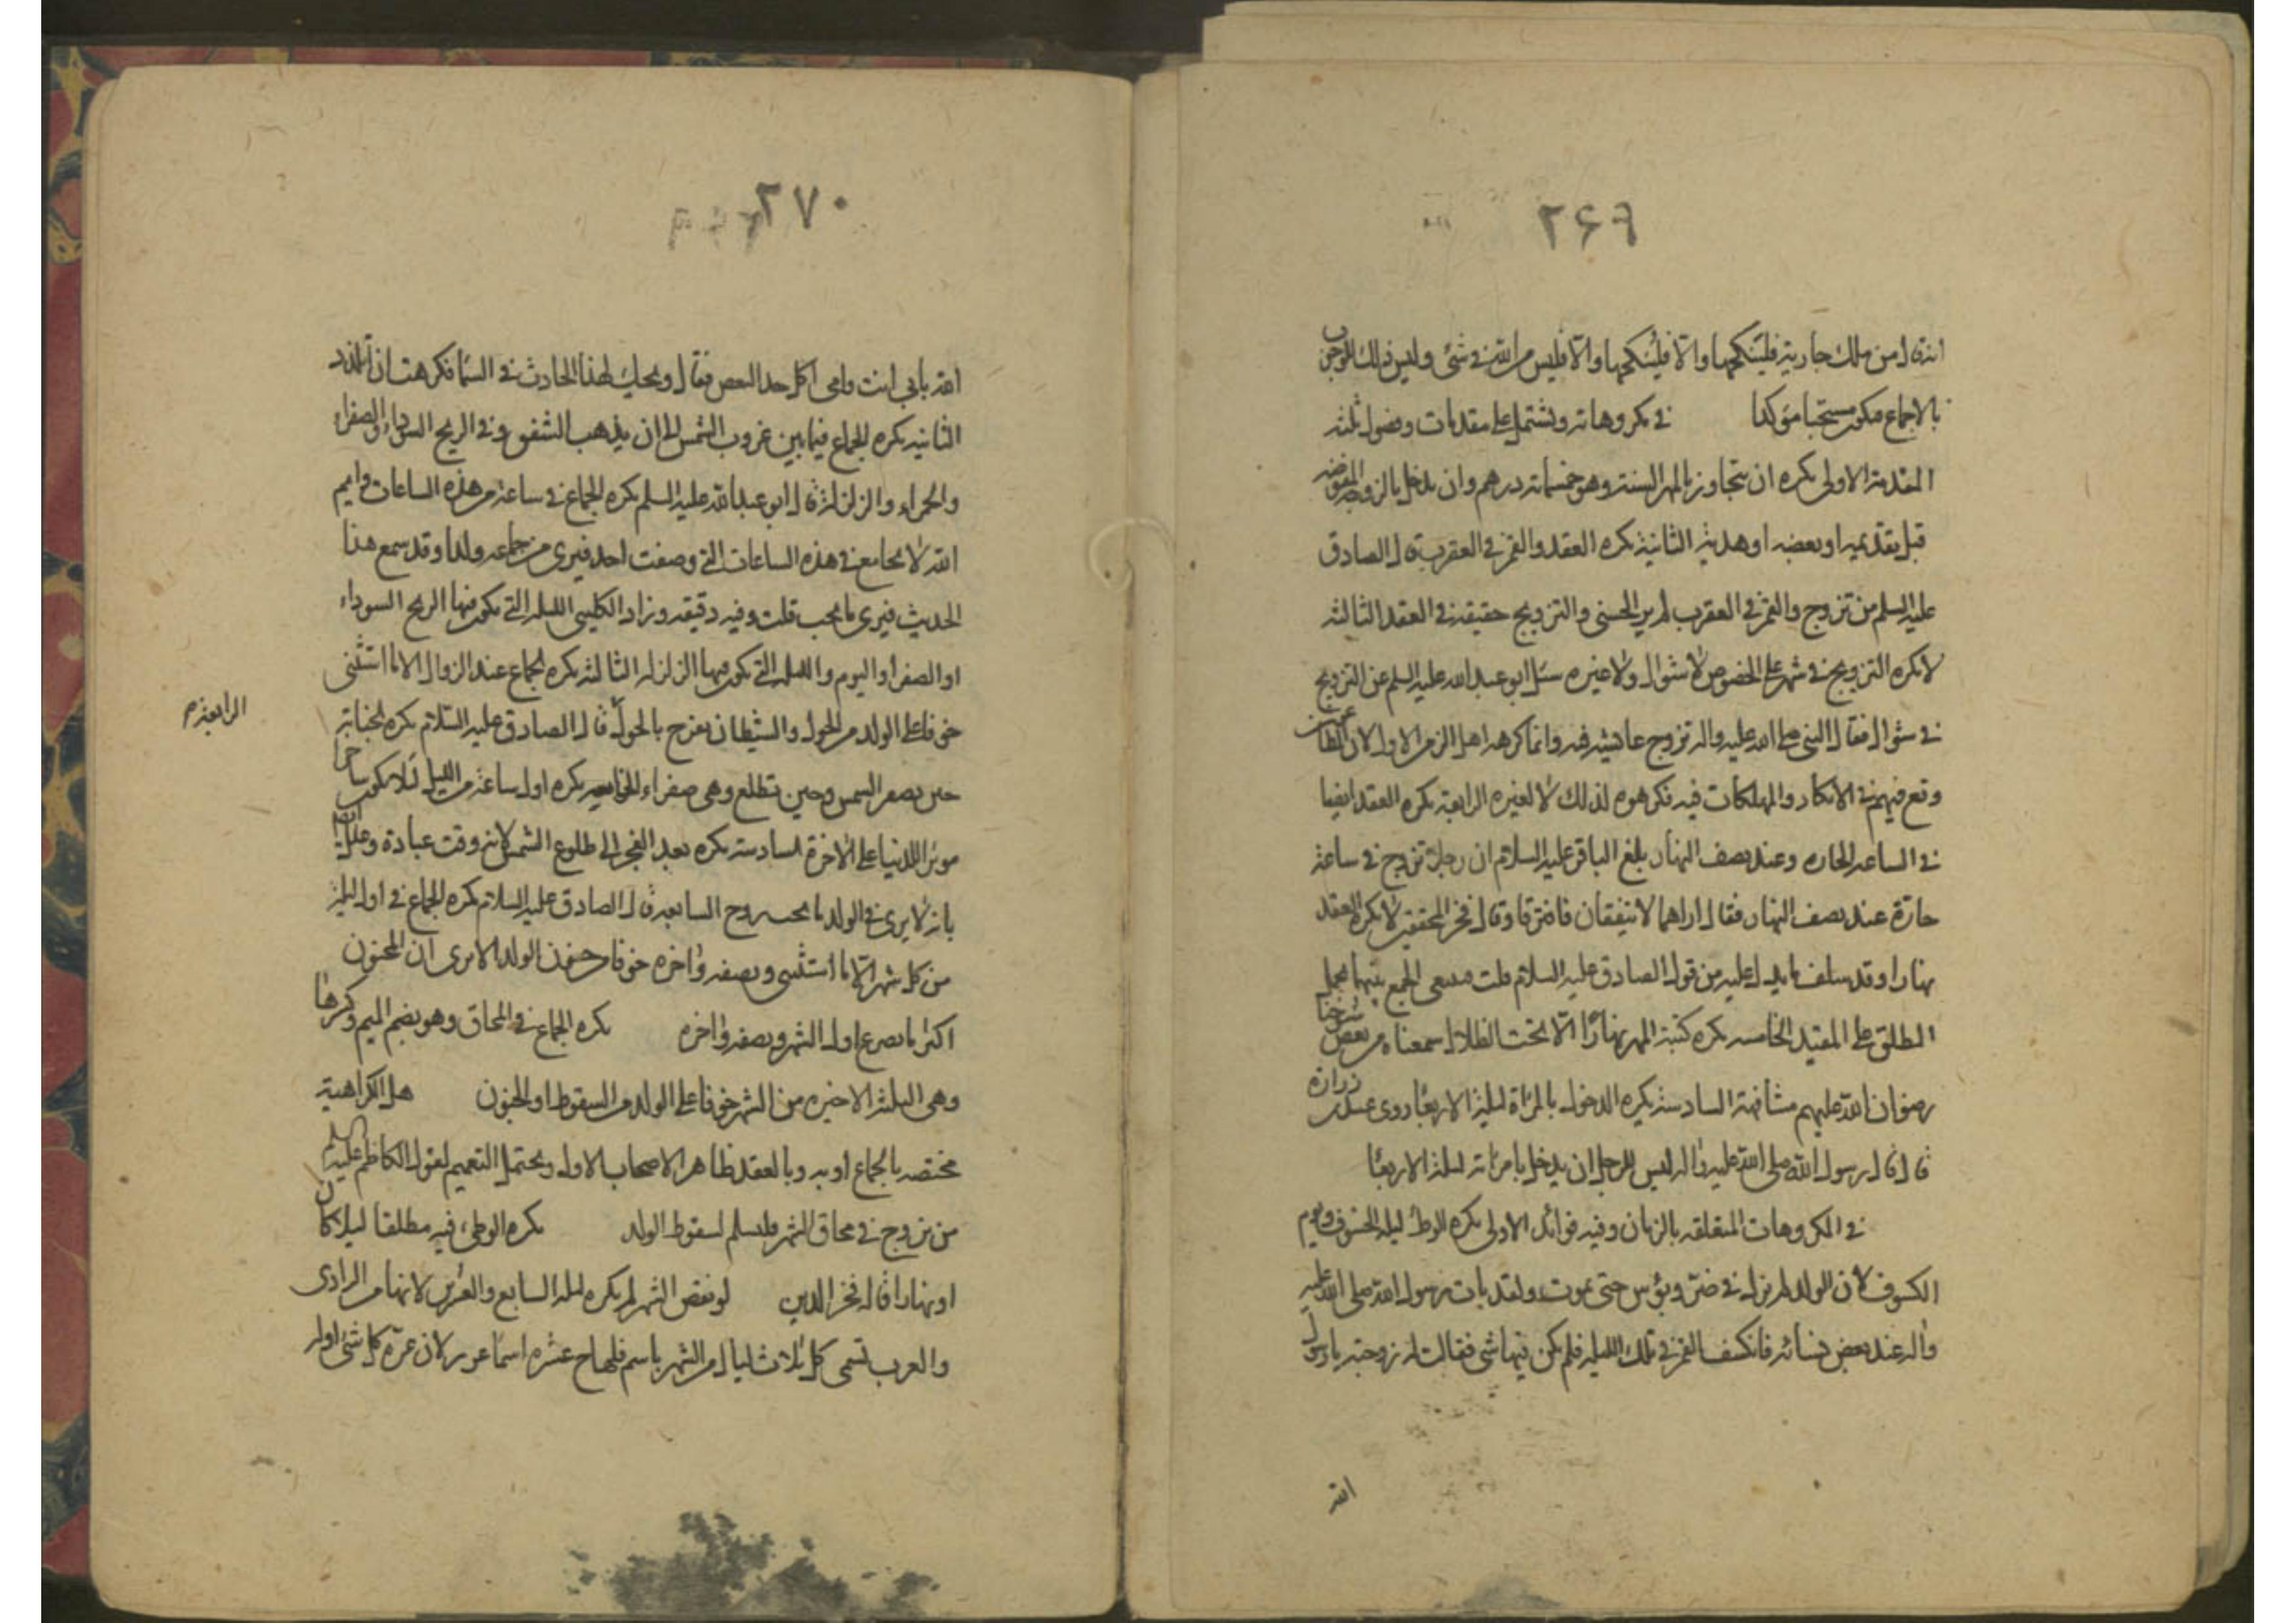 ۲۶۹
انه قال من ملك جارية فلينكحها والا فلينكحها والا فليس من الله في شئ وليس ذلك للوجوب
بالاجماع فيكون مستحبا مؤكدا في مكروهاته وتشتمل على مقدمات وفصول ثلثة
المقدمة الاولى يكره ان يتجاوز بالمهر السنة وهو خمسمائة درهم وان يدخل بالزوجة المفوضة
قبل تقديمه او بعضه او هدية الثانية يكره العقد والقمر في العقرب قال الصادق
عليه السلم من تزوج والقمر في العقرب لم ير الحسنى والتزويج حقيقة في العقد الثالثة
لا يكره التزويج في شهر على الخصوص لا شوال ولا غيره سئل ابو عبد الله عليه السلم عن التزويج
في شوال فقال النبي صلى الله عليه واله تزوج عايشة فيه وانما كرهه اهل الزمن الاول لان الطاعون
وقع فيهم في الابكار والمملكات فيه فكرهوه لذلك لا لغيره الرابعة يكره العقد ايضا
في الساعة الحارة وعند نصف النهار بلغ الباقر عليه السلام ان رجلا تزوج في ساعة
حارة عند نصف النهار فقال اراهما لا يتفقان فافترقا وقال فخر المحققين لا يكره العقد
نهارا وقد سلف ما يدل عليه من قول الصادق عليه السلام قلت الجمع بينهما بحمل
المطلق على المقيد الخامسة يكره كتبة المهر نهارا الا تحت الظلال سمعناه من بعض شيوخنا
رضوان الله عليهم مشافهة السادسة يكره الدخول بالمراة ليلة الاربعا روى زرارة
قال قال رسول الله صلى الله عليه واله ليس للرجل ان يدخل بامراته ليلة الاربعا
في المكروهات المتعلقة بالزمان وفيه فوائد الاولى يكره الوطئ ليلة الخسوف ويوم
الكسوف لان الولد لم يزل في ضر وبؤس حتى يموت ولقد بات رسول الله صلى الله عليه
واله عند بعض نسائه فانكسف القمر في تلك الليلة فلم يكن فيها شئ فقالت له زوجته يا رسول
الله
۲۷۰
الله بابي انت وامي اكل هذا البغض فقال ويحك لهذا الحادث في السما فكرهت ان اتلذذ
الثانية يكره الجماع فيما بين غروب الشمس الى ان يذهب الشفق وفي الريح السوداء والصفراء
والحمراء والزلزلة قال ابو عبد الله عليه السلم يكره الجماع في ساعة من هذه الساعات وايم
الله لا يجامع في هذه الساعات التي وصفت احد فيرى من جماعه ولدا وقد سمع هذا
الحديث فيرى ما يحب قلت وفيه دقيقه وزاد الكليني الليلة التي يكون فيها الريح السوداء
او الصفرا واليوم والليلة التي يكون فيها الزلزلة الثالثة يكره الجماع عند الزوال الا ما استثنى
خوفا على الولد من الحول والشيطان يفرح بالحول قال الصادق عليه السلام يكره الجنابة
الرابعة م
حين تصفر الشمس وحين تطلع وهي صفراء الخامسة يكره اول ساعة من الليل لئلا يكون ساحرا
موثرا للدنيا على الاخرة السادسة يكره بعد الفجر الى طلوع الشمس لانه وقت عبادة وعلل ايضا
بانه لا يرى في الولد ما يحب السابعة قال الصادق عليه السلام يكره الجماع في اول ليلة
من كل شهر الا ما استثنى ونصفه واخره خوفا من جنون الولد الا يرى ان المجنون
اكثر ما يصرع اول الشهر ونصفه واخره يكره الجماع في المحاق وهو بضم الميم وكسرها
وهي الثلثة الاخيره من الشهر خوفا على الولد من السقوط او الجنون هل الكراهية
مختصه بالجماع او به وبالعقد ظاهر الاصحاب الاول ويحتمل التعميم لقول الكاظم عليه السلم
من تزوج في محاق الشهر فليسلم لسقوط الولد يكره الوطى فيه مطلقا ليلا كان
او نهارا قاله فخر الدين لو نقص الشهر لم يكره ليلة السابع والعشرين لانها من الدرادى
والعرب تسمى كل ثلاث ليال من الشهر باسم فلها عشرة اسما غرر لان غرة كل شئ اوله